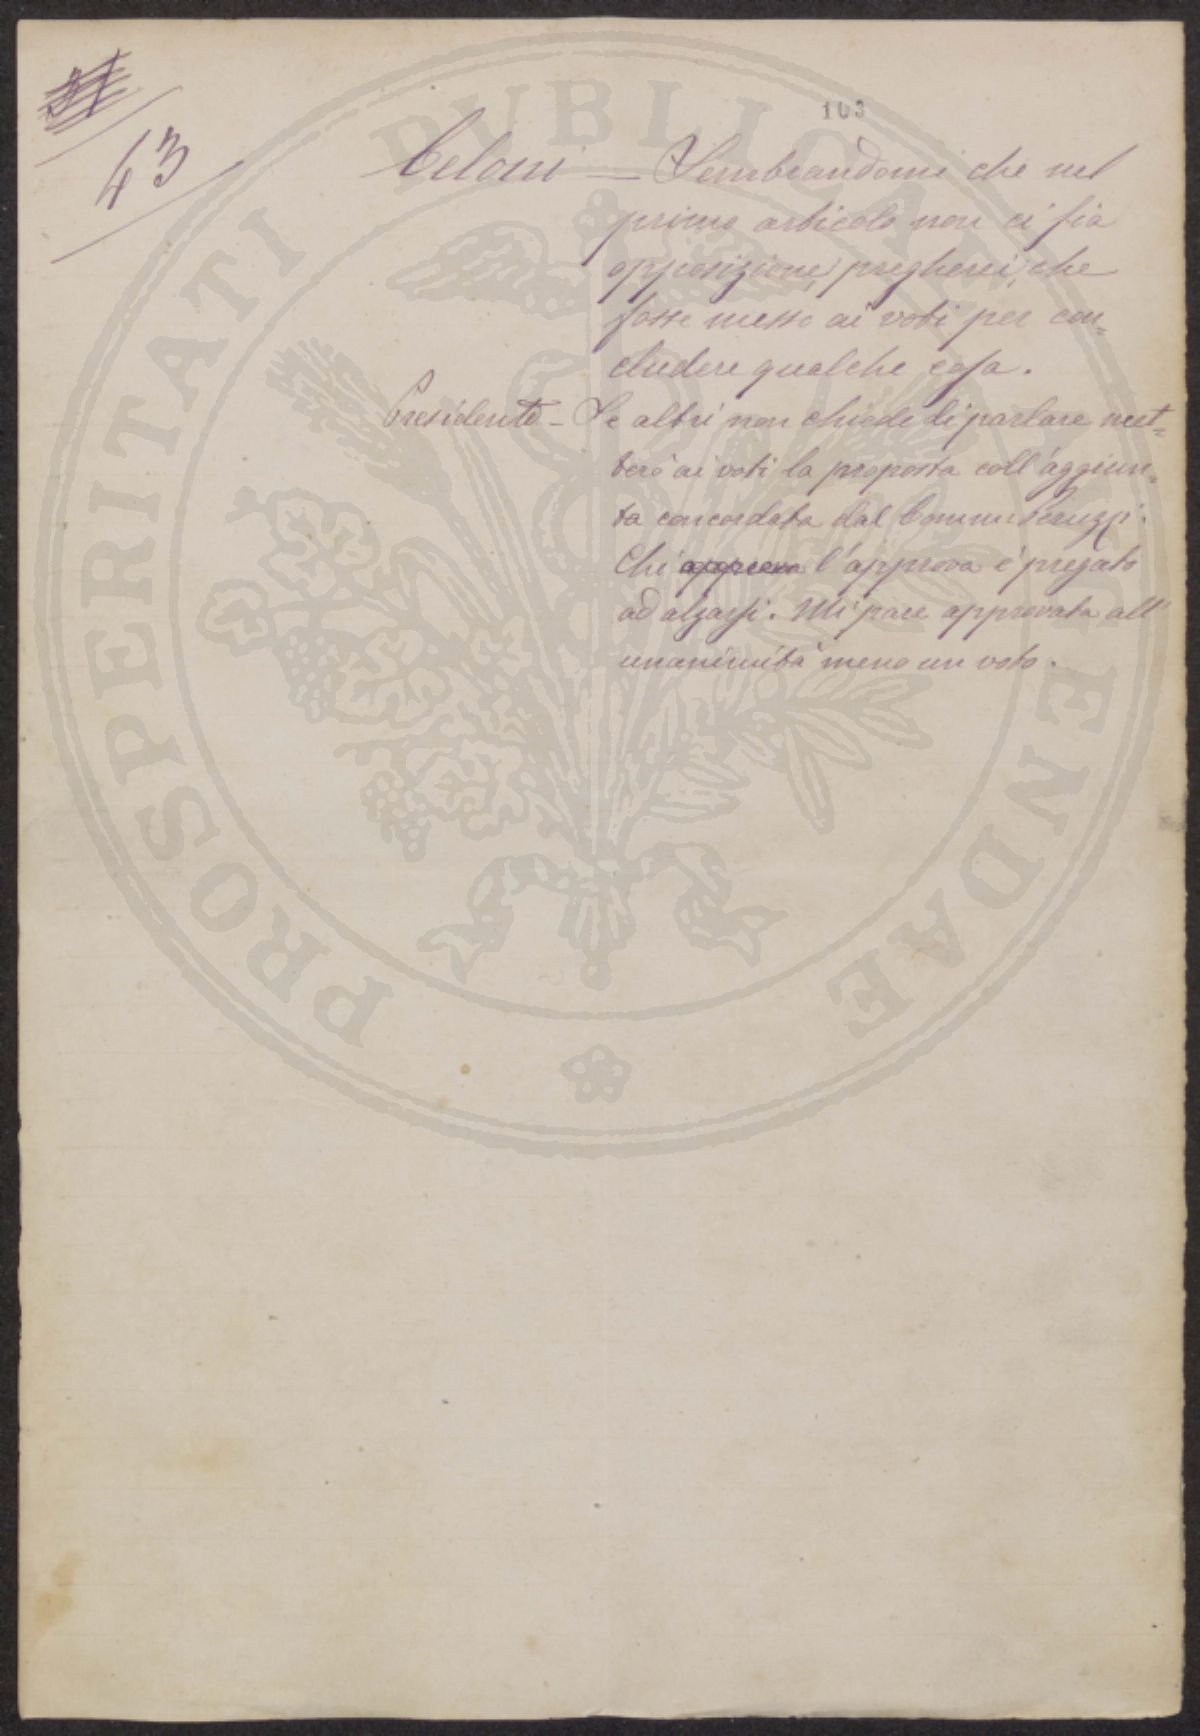 103
43
Celoni — Sembrandomi che nel
primo articolo non ci sia
opposizione, pregherei, che
fosse messo ai voti per con=
cludere qualche cosa.
Presidente - Se altri non chiede di parlare met=
terò ai voti la proposta coll'aggiun=
ta concordata dal Comm. Peruzzi.
Chi approva l'approva è pregato
ad alzarsi. Mi pare approvata all'
unanimità meno un voto.
PUBLICAE
PROSPERITATI AUGENDAE